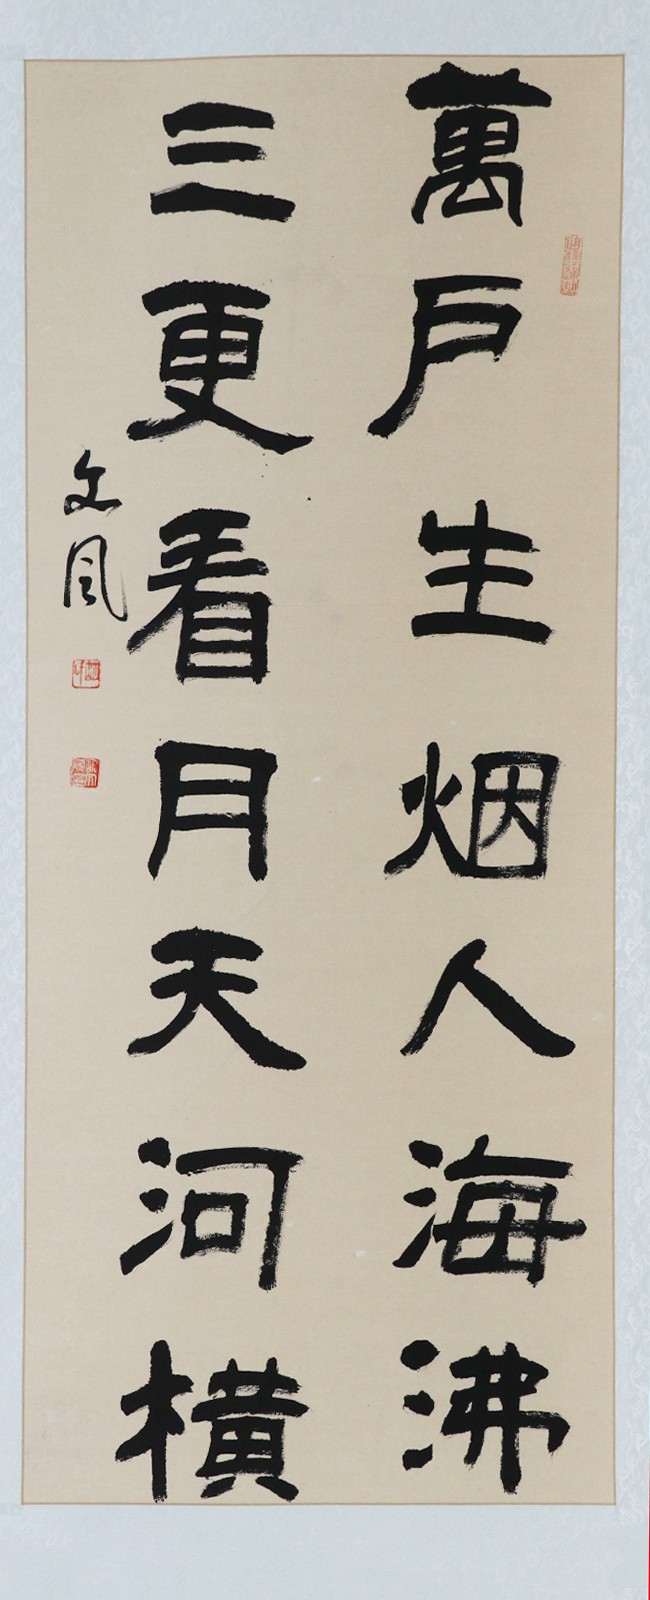 萬戶生烟人海沸
三更看月天河橫
文風